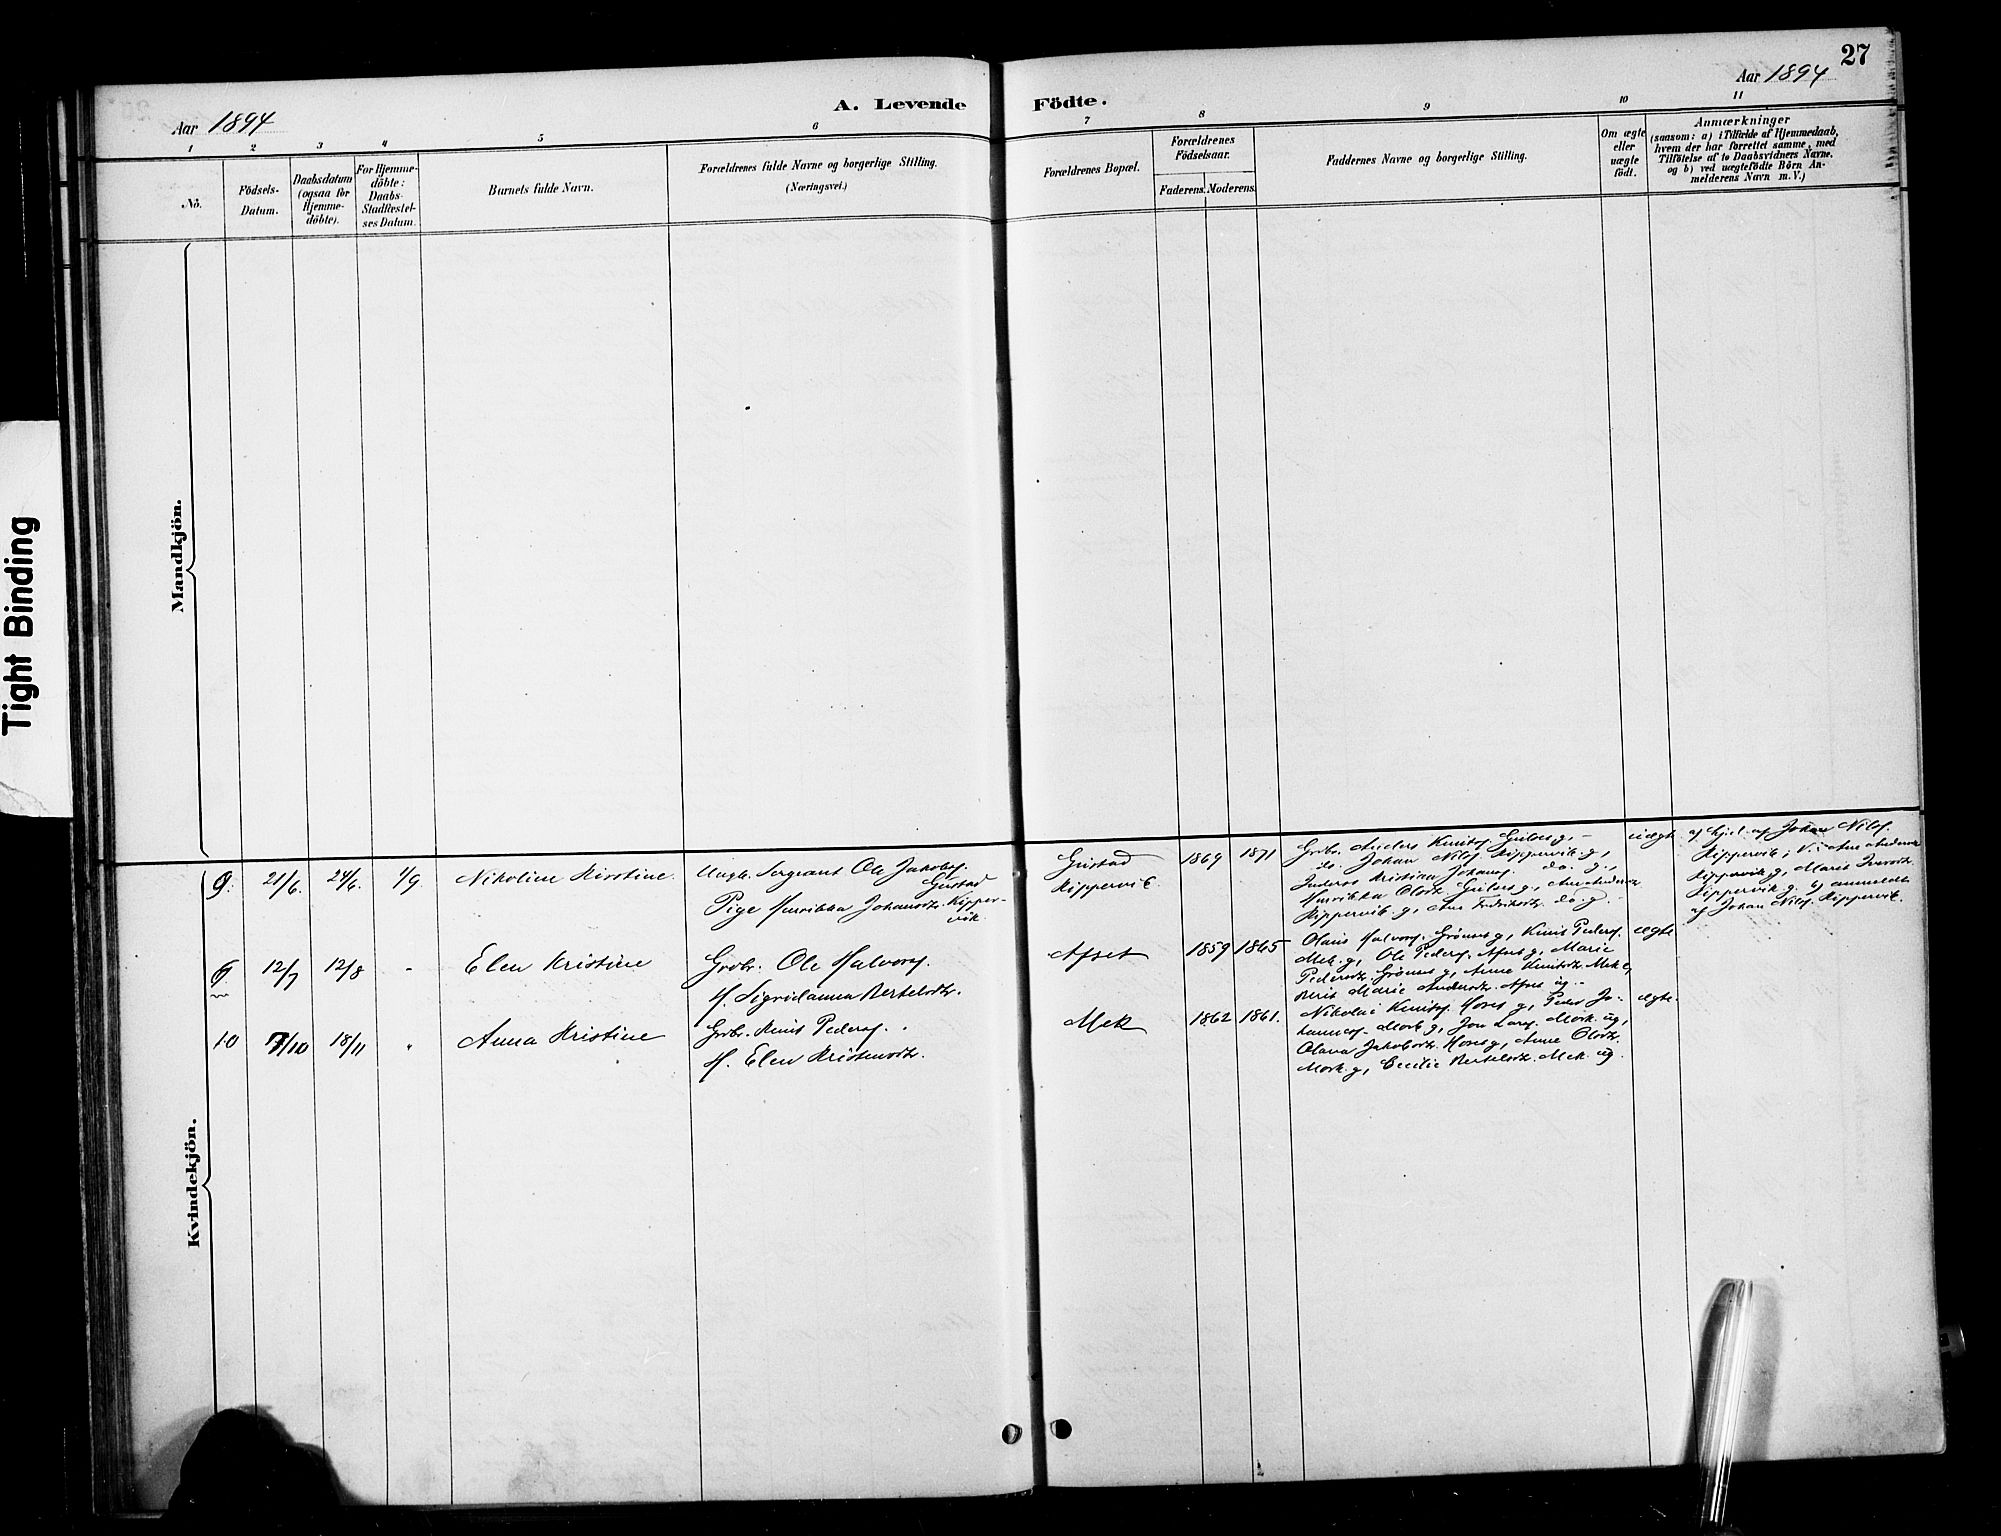 27
Aar 1894
A. Levende Födte.
Aar 1894
1 2 3 4 5 6 7 8 9 10 11
Nô.
Födsels-
Datum.
Daabsdatum
(ogsaa for
Hjemme-
döbte).
For Hjemme-
döbte:
Daabs-
Stadfæstel-
ses Datum.
Barnets fulde Navn.
Forældrenes fulde Navne og borgerlige Stilling.
(Næringsvei.)
Forældrenes Bopæl.
Forældrenes
Födselsaar.
Faderens. Moderens.
Faddernes Navne og borgerlige Stilling.
Om ægte
eller
uægte
födt.
Anmærkninger
(saasom: a) i Tilfælde af Hjemmedaab,
hvem der har forrettet samme, med
Tilföielse af to Daabsvidners Navne,
og b) ved uægtefödte Börn An-
melderens Navn m. V.)
Tight Binding
Mandkjön.
Kvindekjön.
9. 21/6. 24/6. 1/9. Nikoline Kirstine.
Ungk. Sergeant Ole Jakobsf.
Gustad
Pige Henrikka Johansdtr. Kipper-
vik.
Gustad
Kippervik.
1869 1871
Grdbr. Anders Knutsf. g, -
do. Johan Nilsf. Kippervik g,
Kristina Johansf. do. g.,
Henrikka Olsdtr. g,
Kippervik g, Ane Fredriksdtr. do. g.
uægte.
af Johan Nilsf.
Kippervik; V:
Kippervik g, Marit Iversdtr.
Kippervik g. b) anmeldt
af Johan Nilsf. Kippervik.
9. 12/7 12/8 - Elen Kristine
Grdbr. Ole Halvorsf.
H. Sigridanna Bertelsdtr.
Afset 1859 1865
Olaus Halvorsf. Grönnes g, Knut Pedersf.
Mek g, Ole Pedersf. Afset g, Marie
Pedersdtr. Grönnes g, Anne Knutsdtr. Mek g,
Berit Marie Andersdtr. Afset ug. -
ægte
10 7/10 18/11 " Anna Kristine
Grdbr. Knut Pedersf.
H. Elen Kristensdtr.
Mek 1862 1861.
Nikolai Knutsf. Hoves g, Peder Jo-
hannesf. Mork g, Jon Larsf. Mork ug,
Olava Jakobsdtr. Hoves g, Anne Olsdtr.
Mork g, Cecilie Bertelsdtr. Mek ug.
ægte.